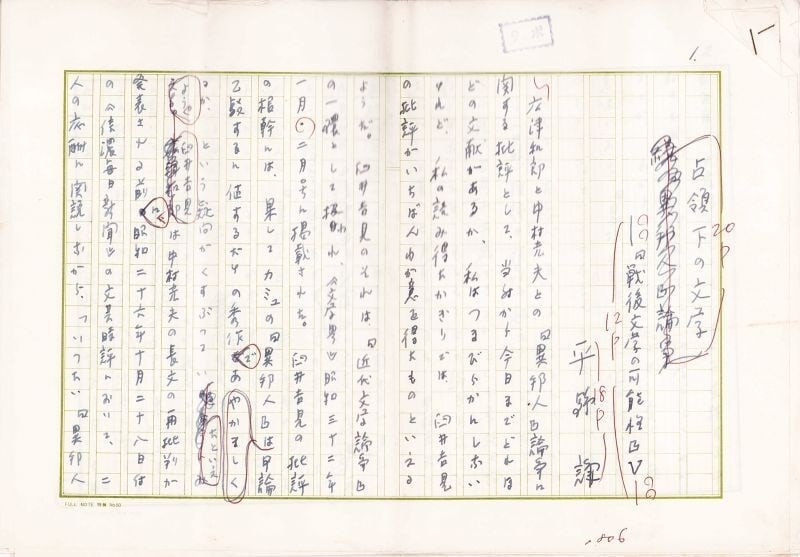 1.
占領下の文学
20P
『戦後文学の可能性』
12P
平野謙
18P
広津和郎と中村光夫との『異邦人』論争に
関する批評として、当時から今日までどれほ
どの文献があるか、私はつまびらかにしない
けれど、私の読み得たかぎりでは、臼井吉見
の批評がいちばんわが意を得たものといえる
ようだ。臼井吉見のそれは、『近代文学論争』
の一環として扱われ、《文学界》昭和三十二年
一月・二月号に掲載された。臼井吉見の批評
の根幹は、果してカミュの『異邦人』は甲論
乙駁するに値するだけの秀作であ
やかましく
るか、という疑問がくすぶってい
たといえ
ようか
臼井吉見
は中村光夫の長文の再批判が
発表される前に
昭和二十六年十月二十八日付
の《信濃毎日新聞》の文芸時評において、二
人の応酬に関説しながら、「いったい『異邦人
FULL NOTE 特製 No50
906.